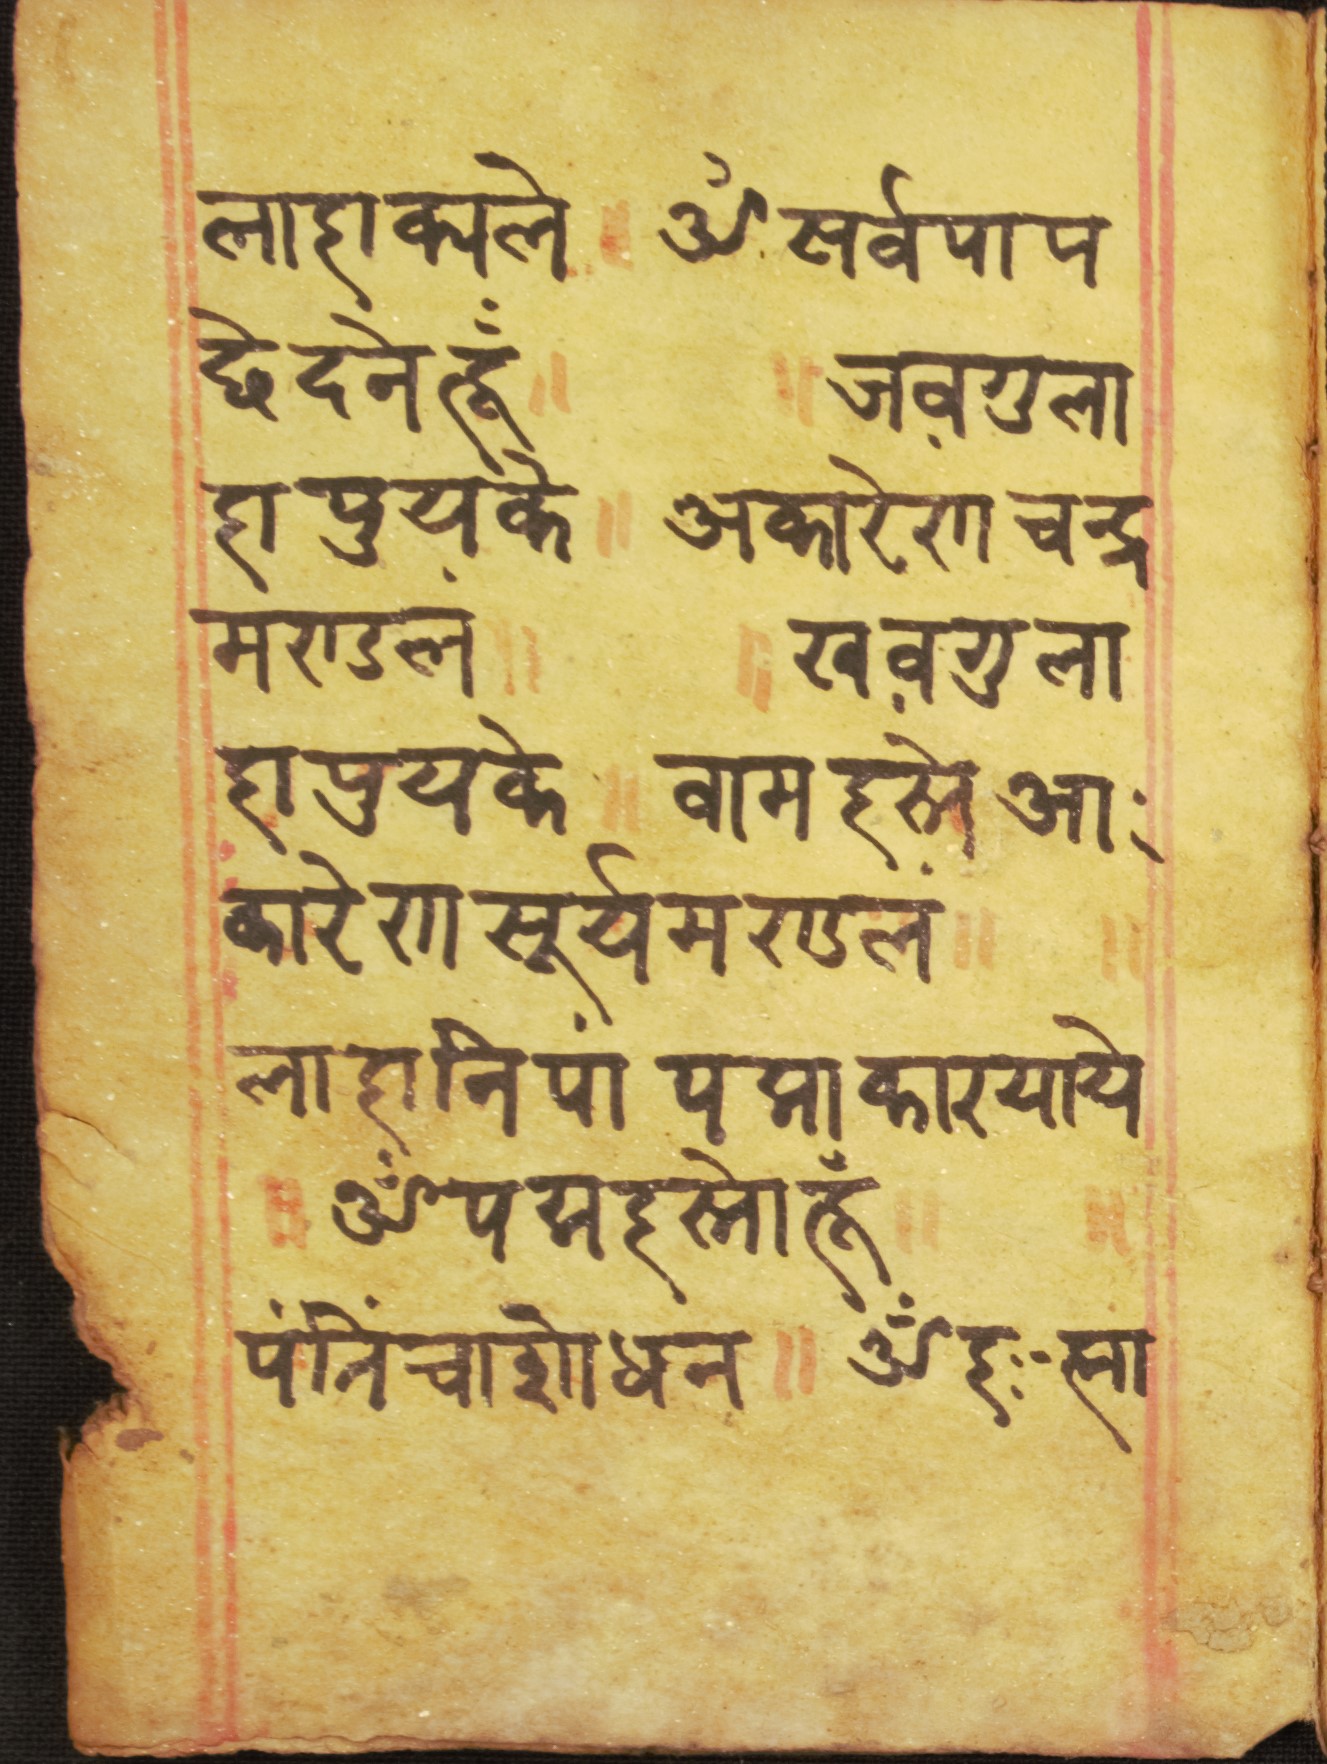 लाहाक्यले ॥ ॐ सर्वपाप
छेदने हूँ ॥ ॥ जवगुला
हा पुयके ॥ अकारेण चन्द्र
मण्डलं ॥ ॥ खवगुला
हा पुयके ॥ वामहस्ते आः
कारेण सूर्यमण्डलं ॥ ॥
लाहानिपां पद्माकारयाये
॥ ॐ पद्महस्ताे हूँ ॥ ॥
पंनिंचाशोधन ॥ ॐ हः स्ना